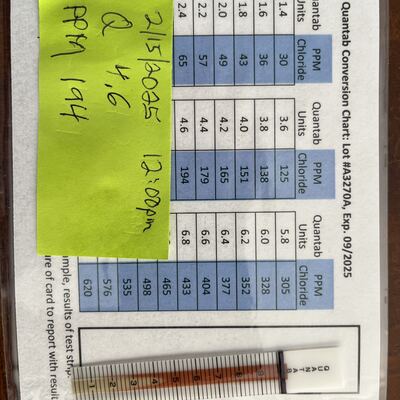 Quantab Conversion Chart: Lot #A3270A, Exp. 09/2025
Quantab Units PPM Chloride Quantab Units PPM Chloride Quantab Units PPM Chloride
1.4 30 3.6 125 5.8 305
1.6 36 3.8 138 6.0 328
1.8 43 4.0 151 6.2 352
2.0 49 4.2 165 6.4 377
2.2 57 4.4 179 6.6 404
2.4 65 4.6 194 6.8 433
465
498
535
576
620
2/15/2025 12:00pm
Q 4.6
PPM 194
results of test
of card to report with
QUANTAB
9
8
7
6
5
4
3
2
1